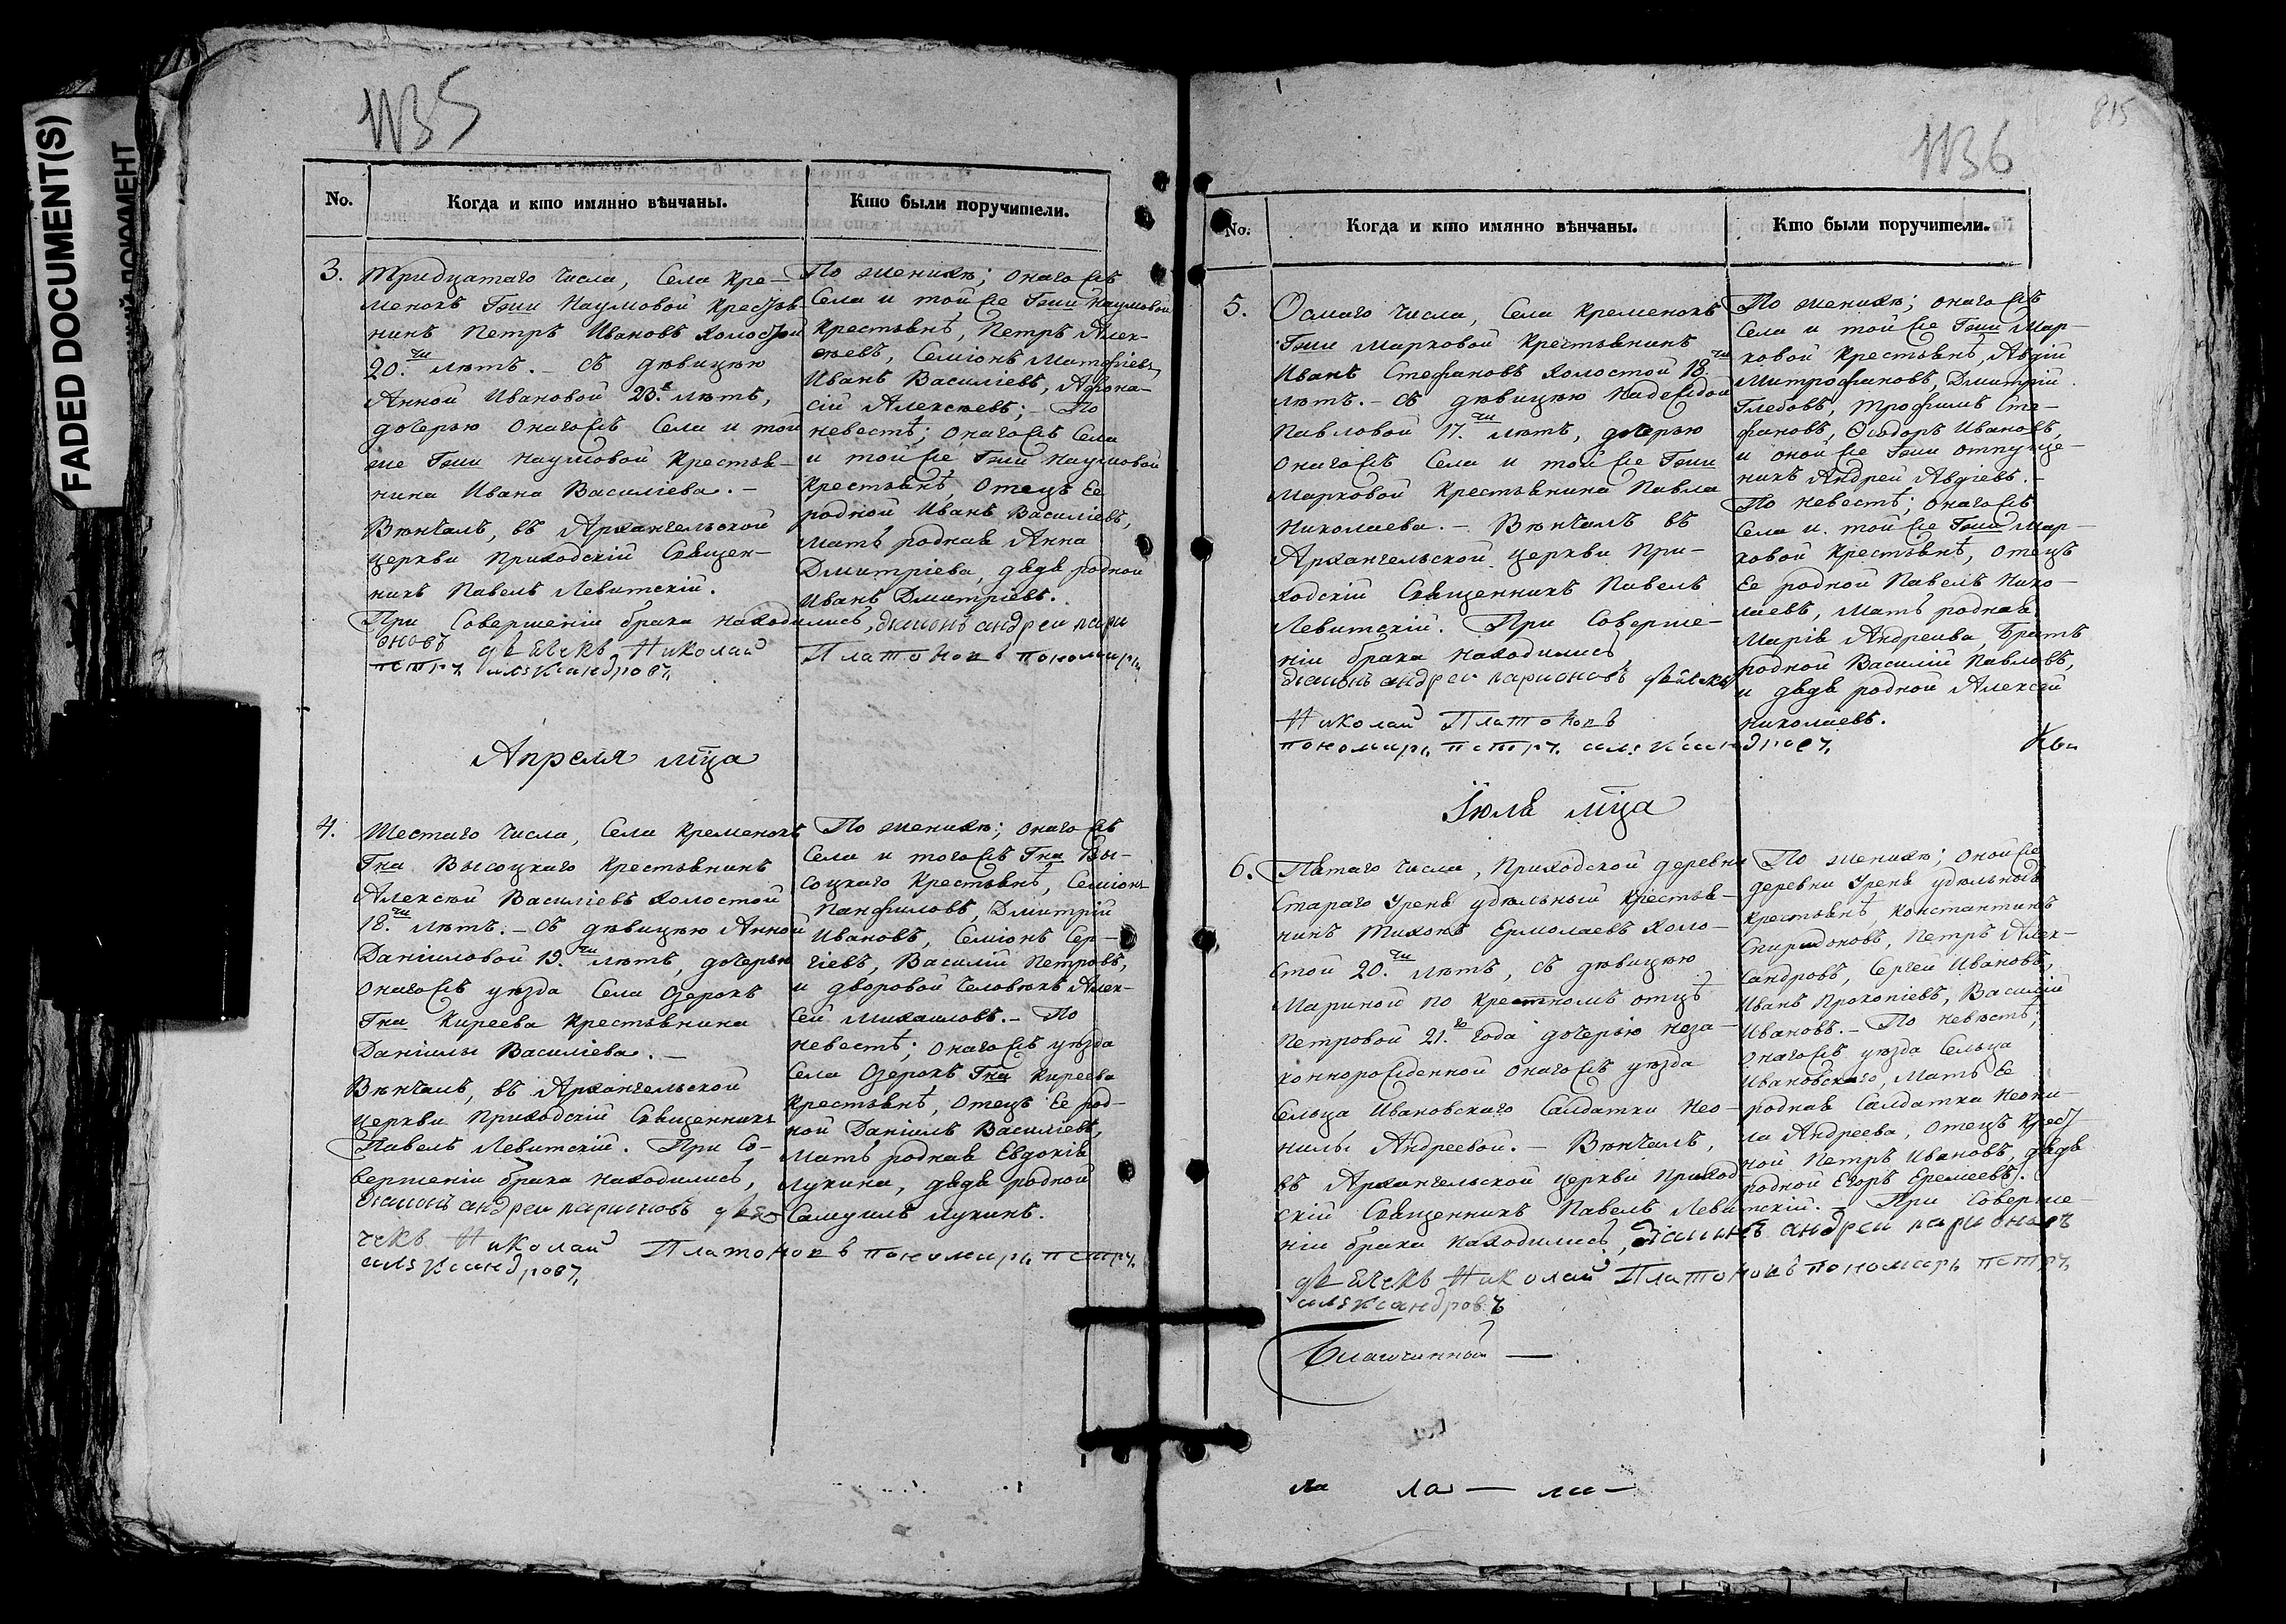 FADED DOCUMENT(S)
ДОКУМЕНТ
1135
No.
Когда и кто имянно вѣнчаны.
Кто были поручители.
3.
Тридцатаго числа, Села Кре-
менокъ Гжи Наумовой Крестья-
нинъ Петръ Ивановъ холостой
20.ти лѣтъ. - Съ дѣвицею
Анной Ивановой 23.х лѣтъ,
дочерью онагожъ Села и той
же Гжи Наумовой Крестья-
нина Ивана Василіева. -
Вѣнчалъ, въ Архангельской
церкви приходскій Священ-
никъ Павелъ Левитскій.
При Совершеніи брака находились, діаконъ андреи лари
оновъ дьячекъ Николай Платоновъ пономарь
петръ александровъ
По женихѣ; онагожъ
Села и той же Гжи Наумовой
Крестьянѣ, Петръ Алек-
сѣевъ, Семіонъ Матфіевъ,
Иванъ Василіевъ, Афона-
сій Алексѣевъ; - По
невестѣ; онагожъ Села
и той же Гжи Наумовой
Крестьянѣ, Отецъ Ее
родной Иванъ Василіевъ,
мать родная Анна
Дмитріева, дядя родной
Иванъ Дмитріевъ.
Апреля мца
4.
Шестаго числа, Села Кременокъ
Гна Высоцкаго Крестьянинъ
Алексѣй Василіевъ холостой
18.ти лѣтъ. - Съ дѣвицею Анной
Даніиловой 19.ти лѣтъ, дочерью
онагожъ уѣзда Села Озерокъ
Гна Киреева Крестьянина
Даніилы Василіева. -
Вѣнчалъ, въ Архангельской
церкви приходскій Священникъ
Павелъ Левитскій. При Со-
вершеніи брака находились,
діаконъ андреи ларионовъ дья-
чекъ Николай Платоновъ пономарь петръ
александровъ
По женихѣ; онагожъ
Села и тогожъ Гна Вы-
соцкаго Крестьянѣ, Семіонъ
Панфиловъ, Дмитрій
Ивановъ, Семіонъ Сер-
гіевъ, Василій Петровъ,
и дворовой человѣкъ Алек-
сей Михаиловъ. - По
невестѣ; онагожъ уѣзда
Села Озерокъ Гна Киреева
Крестьянѣ, Отецъ Ее род-
ной Даніилъ Василіевъ,
мать родная Евдокія
Лукина, дядя родной
Самуилъ Лукинъ.
815
1136
No.
Когда и кто имянно вѣнчаны.
Кто были поручители.
5.
Осмаго числа, Села Кременокъ
Гжи Марковой Крестьянинъ
Иванъ Стефановъ холостой 18.ти
лѣтъ. - Съ дѣвицею Надеждой
Павловой 17.ти лѣтъ, дочерью
онагожъ Села и той же Гжи
Марковой Крестьянина Павла
Николаева. - Вѣнчалъ въ
Архангельской церкви при-
ходскій Священникъ Павелъ
Левитскій. При Соверше-
ніи брака находились
діаконъ андреи ларионовъ дьячекъ
Николай Платоновъ
пономарь петръ александровъ
По женихѣ; онагожъ
Села и той же Гжи Мар-
ковой Крестьянѣ, Авдій
Митрофановъ, Дмитрій
Глебовъ, Трофимъ Сте-
фановъ, Ѳеодоръ Ивановъ,
и оной же Гжи отпуще-
никъ Андрей Авдіевъ. -
По невестѣ; онагожъ
Села и той же Гжи Мар-
ковой Крестьянѣ, отецъ
Ее родной Павелъ Нико-
лаевъ, мать родная
Марія Андреива, Братъ
родной Василій Павловъ,
и дядя родной Алексѣй
Николаевъ.
Іюля мца
6.
Пятаго числа, Приходской деревни
Стараго Уреня удѣльный крестья-
нинъ Тихонъ Ермолаевъ холо-
стой 20.ти лѣтъ, съ дѣвицею
Мариной по крестномъ отцѣ
Петровой 21.го года дочерью неза-
коннорожденной онагожъ уѣзда
Сельца Ивановскаго Салдатки Нео-
нилы Андреевой. - Вѣнчалъ,
въ Архангельской церкви приход
скій Священникъ Павелъ Левитскій. - При Соверше-
ніи брака находились, діаконъ андреи ларионовъ
дьячекъ Николай Платоновъ пономарь петръ
александровъ
По женихѣ; оной же
деревни Уреня удѣльной
крестьянѣ, Константинъ
Спиридоновъ, Петръ Алек-
сандровъ, Сергей Ивановъ,
Иванъ Прокопіевъ, Василій
Ивановъ. - По невестѣ;
онагожъ уѣзда Сельца
Ивановскаго, мать Ее
родная Салдатка Неони-
ла Андреева, отецъ крест
ной Петръ Ивановъ, дядя
родной Егоръ Еремеевъ.
Благочинный -
ла ла - ла -